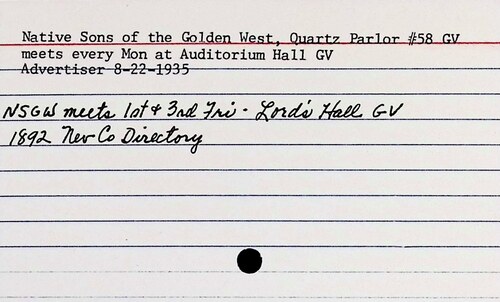 Native Sons of the Golden West, Quartz Parlor #58 GV
meets every Mon at Auditorium Hall GV
Advertiser 8-22-1935
NSGW meets 1st & 3rd Fri - Lord's Hall GV
1892 Nev Co Directory